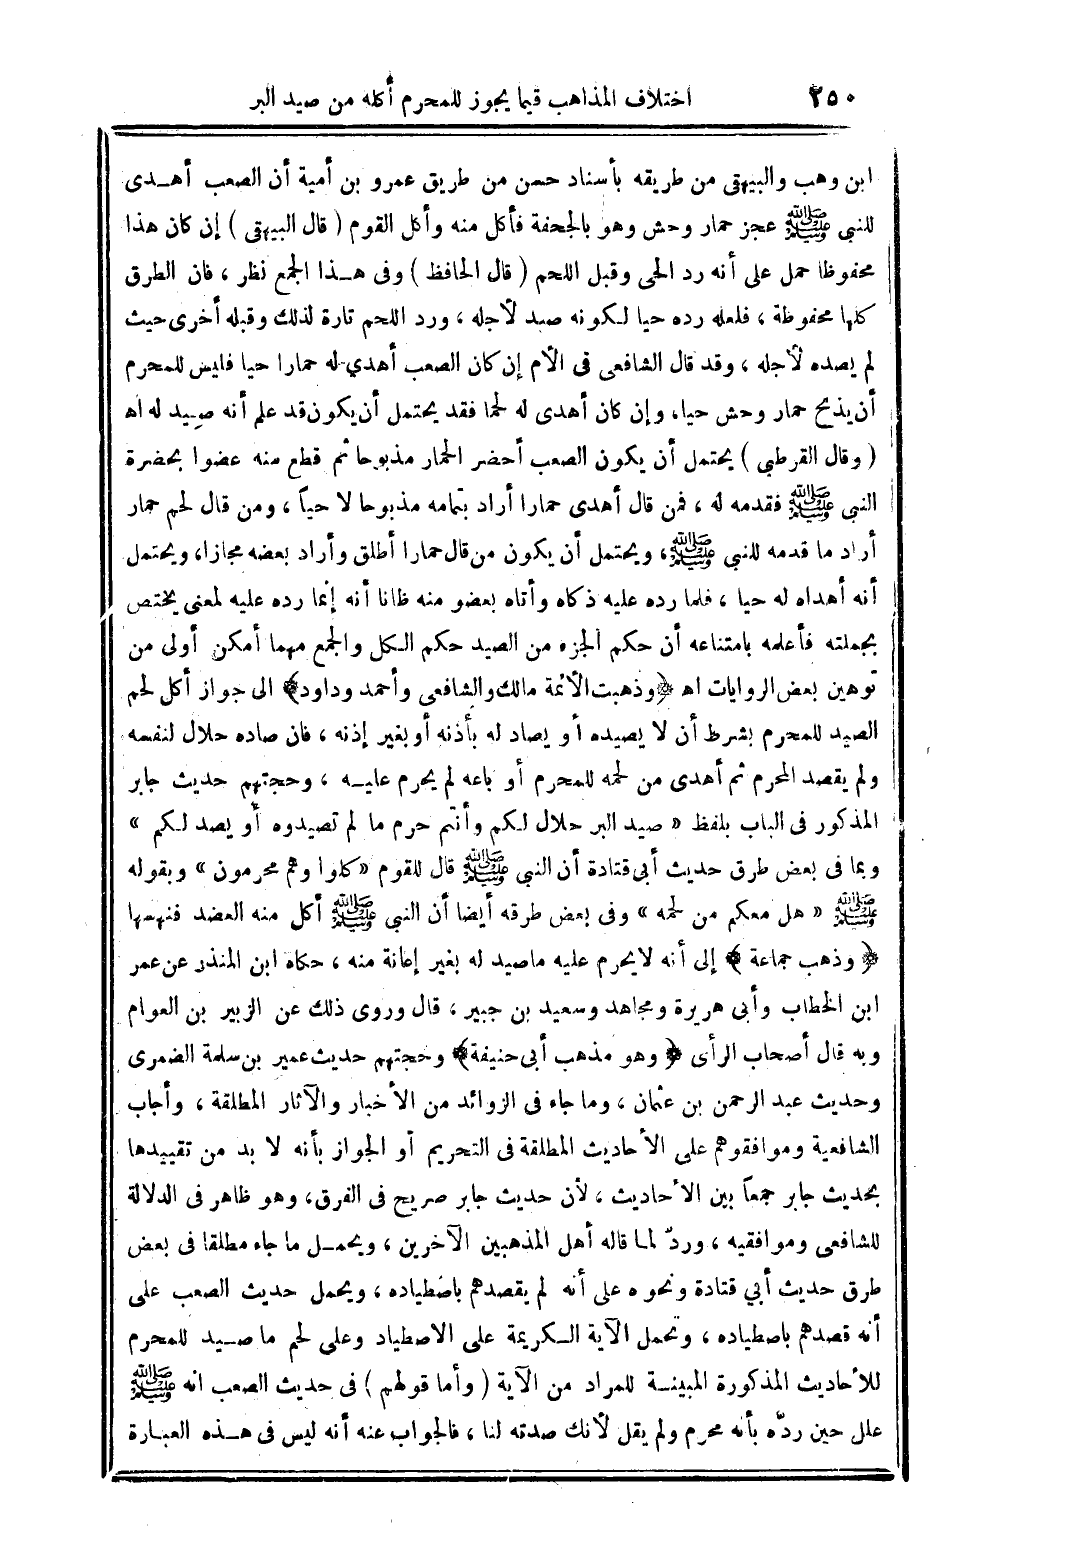 ٢٥٠ اختلاف المذاهب فيما يجوز للمحرم أكله من صيد البر
ابن وهب والبيهقى من طريقه بأسناد حسن من طريق عمرو بن أمية أن الصعب أهـدى
للنبى ﷺ عجز حمار وحش وهو بالجحفة فأكل منه وأكل القوم ( قال البيهقى ) إن كان هذا
محفوظا حمل على أنه رد الحى وقبل اللحم ( قال الحافظ ) وفى هـذا الجمع نظر ، فان الطرق
كلها محفوظة ، فلعله رده حيا لكونه صيد لأجله ، ورد اللحم تارة لذلك وقبله أخرى حيث
لم يصده لأجله ، وقد قال الشافعى فى الأم إن كان الصعب أهدي له حمارا حيا فليس للمحرم
أن يذبح حمار وحش حيا، وإن كان أهدى له لحما فقد يحتمل أن يكون قد علم أنه صيد له اه
( وقال القرطبى ) يحتمل أن يكون الصعب أحضر الحمار مذبوحا ثم قطع منه عضوا بحضرة
النبى ﷺ فقدمه له ، فمن قال أهدى حمارا أراد بتمامه مذبوحا لا حياً ، ومن قال لحم حمار
أراد ما قدمه للنبى ﷺ، ويحتمل أن يكون من قال حمارا أطلق وأراد بعضه مجازا، ويحتمل
أنه أهداه له حيا ، فلما رده عليه ذكاه وأتاه بعضو منه ظانا أنه إنما رده عليه لمعنى يختص
بجملته فأعلمه بامتناعه أن حكم الجزء من الصيد حكم الكل والجمع مهما أمكن أولى من
توهين بعض الروايات اه ﴿وذهبت الأئمة مالك والشافعى وأحمد وداود﴾ الى جواز أكل لحم
الصيد للمحرم بشرط أن لا يصيده أو يصاد له بأذنه أو بغير إذنه ، فان صاده حلال لنفسه
ولم يقصد المحرم ثم أهدى من لحمه للمحرم أو باعه لم يحرم عليـه ، وحجتهم حديث جابر
المذكور فى الباب بلفظ « صيد البر حلال لكم وأنتم حرم ما لم تصيدوه أو يصد لكم »
وبما فى بعض طرق حديث أبى قتادة أن النبى ﷺ قال للقوم «كلوا وهم محرمون» وبقوله
ﷺ « هل معكم من لحمه » وفى بعض طرقه أيضا أن النبى ﷺ أكل منه العضد فنهسها
﴿ وذهب جماعة ﴾ إلى أنه لا يحرم عليه ماصيد له بغير إعانة منه ، حكاه ابن المنذر عن عمر
ابن الخطاب وأبى هريرة ومجاهد وسعيد بن جبير ، قال وروى ذلك عن الزبير بن العوام
وبه قال أصحاب الرأى ﴿ وهو مذهب أبى حنيفة﴾ وحجتهم حديث عمير بن سلمة الضمرى
وحديث عبد الرحمن بن عثمان ، وما جاء فى الزوائد من الأخبار والآثار المطلقة ، وأجاب
الشافعية وموافقوهم على الأحاديث المطلقة فى التحريم أو الجواز بأنه لا بد من تقييدها
بحديث جابر جمعاً بين الأحاديث ، لأن حديث جابر صريح فى الفرق، وهو ظاهر فى الدلالة
للشافعى وموافقيه ، وردّ لمـا قاله أهل المذهبين الآخرين ، ويحمـل ما جاء مطلقا فى بعض
طرق حديث أبي قتادة ونحوه على أنه لم يقصدهم باصطياده ، ويحمل حديث الصعب على
أنه قصدهم باصطياده ، وتحمل الآية الكريمة على الاصطياد وعلى لحم ما صـيد للمحرم
للأحاديث المذكورة المبينـة للمراد من الآية ( وأما قولهم ) فى حديث الصعب انه ﷺ
علل حين ردّه بأنه محرم ولم يقل لأنك صدته لنا ، فالجواب عنه أنه ليس فى هـذه العبـارة